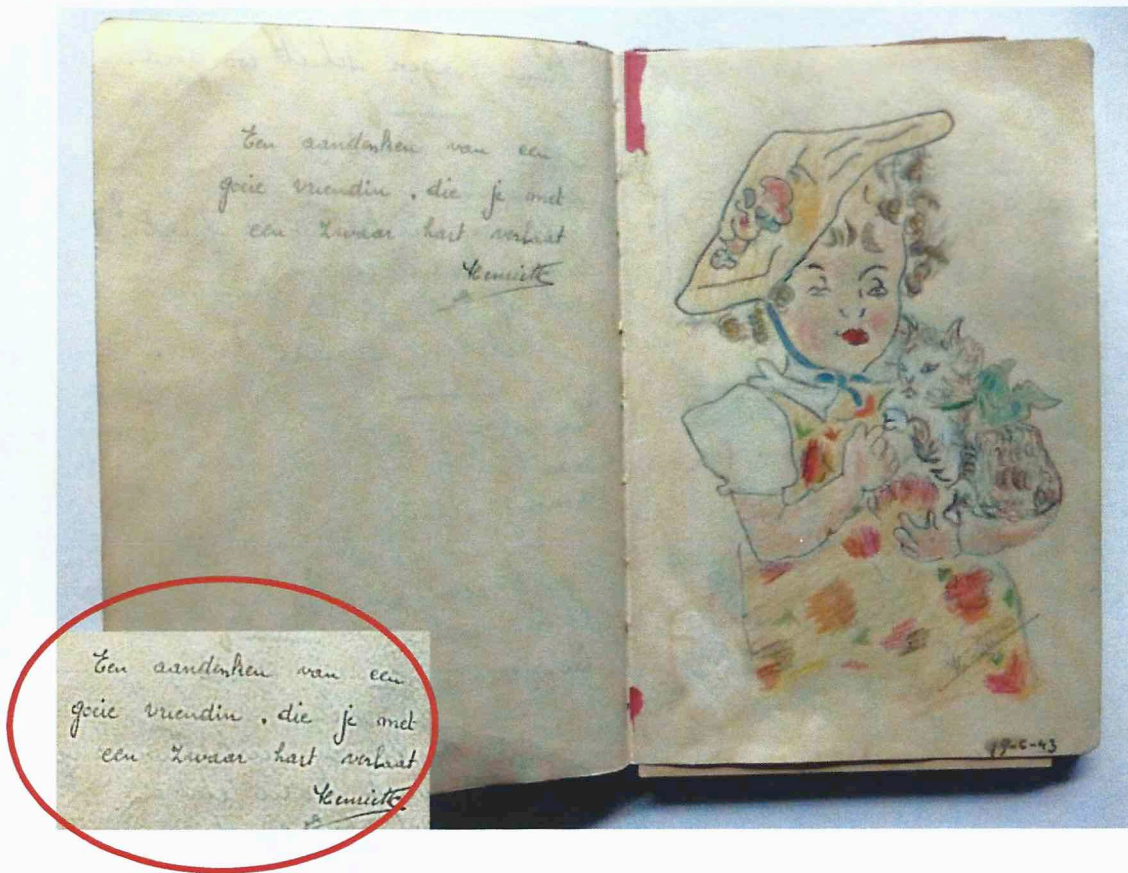 Een aandenken van een
goeie vriendin, die je met
een zwaar hart verlaat
Henriette
19-6-43
Een aandenken van een
goeie vriendin, die je met
een zwaar hart verlaat
Henriette